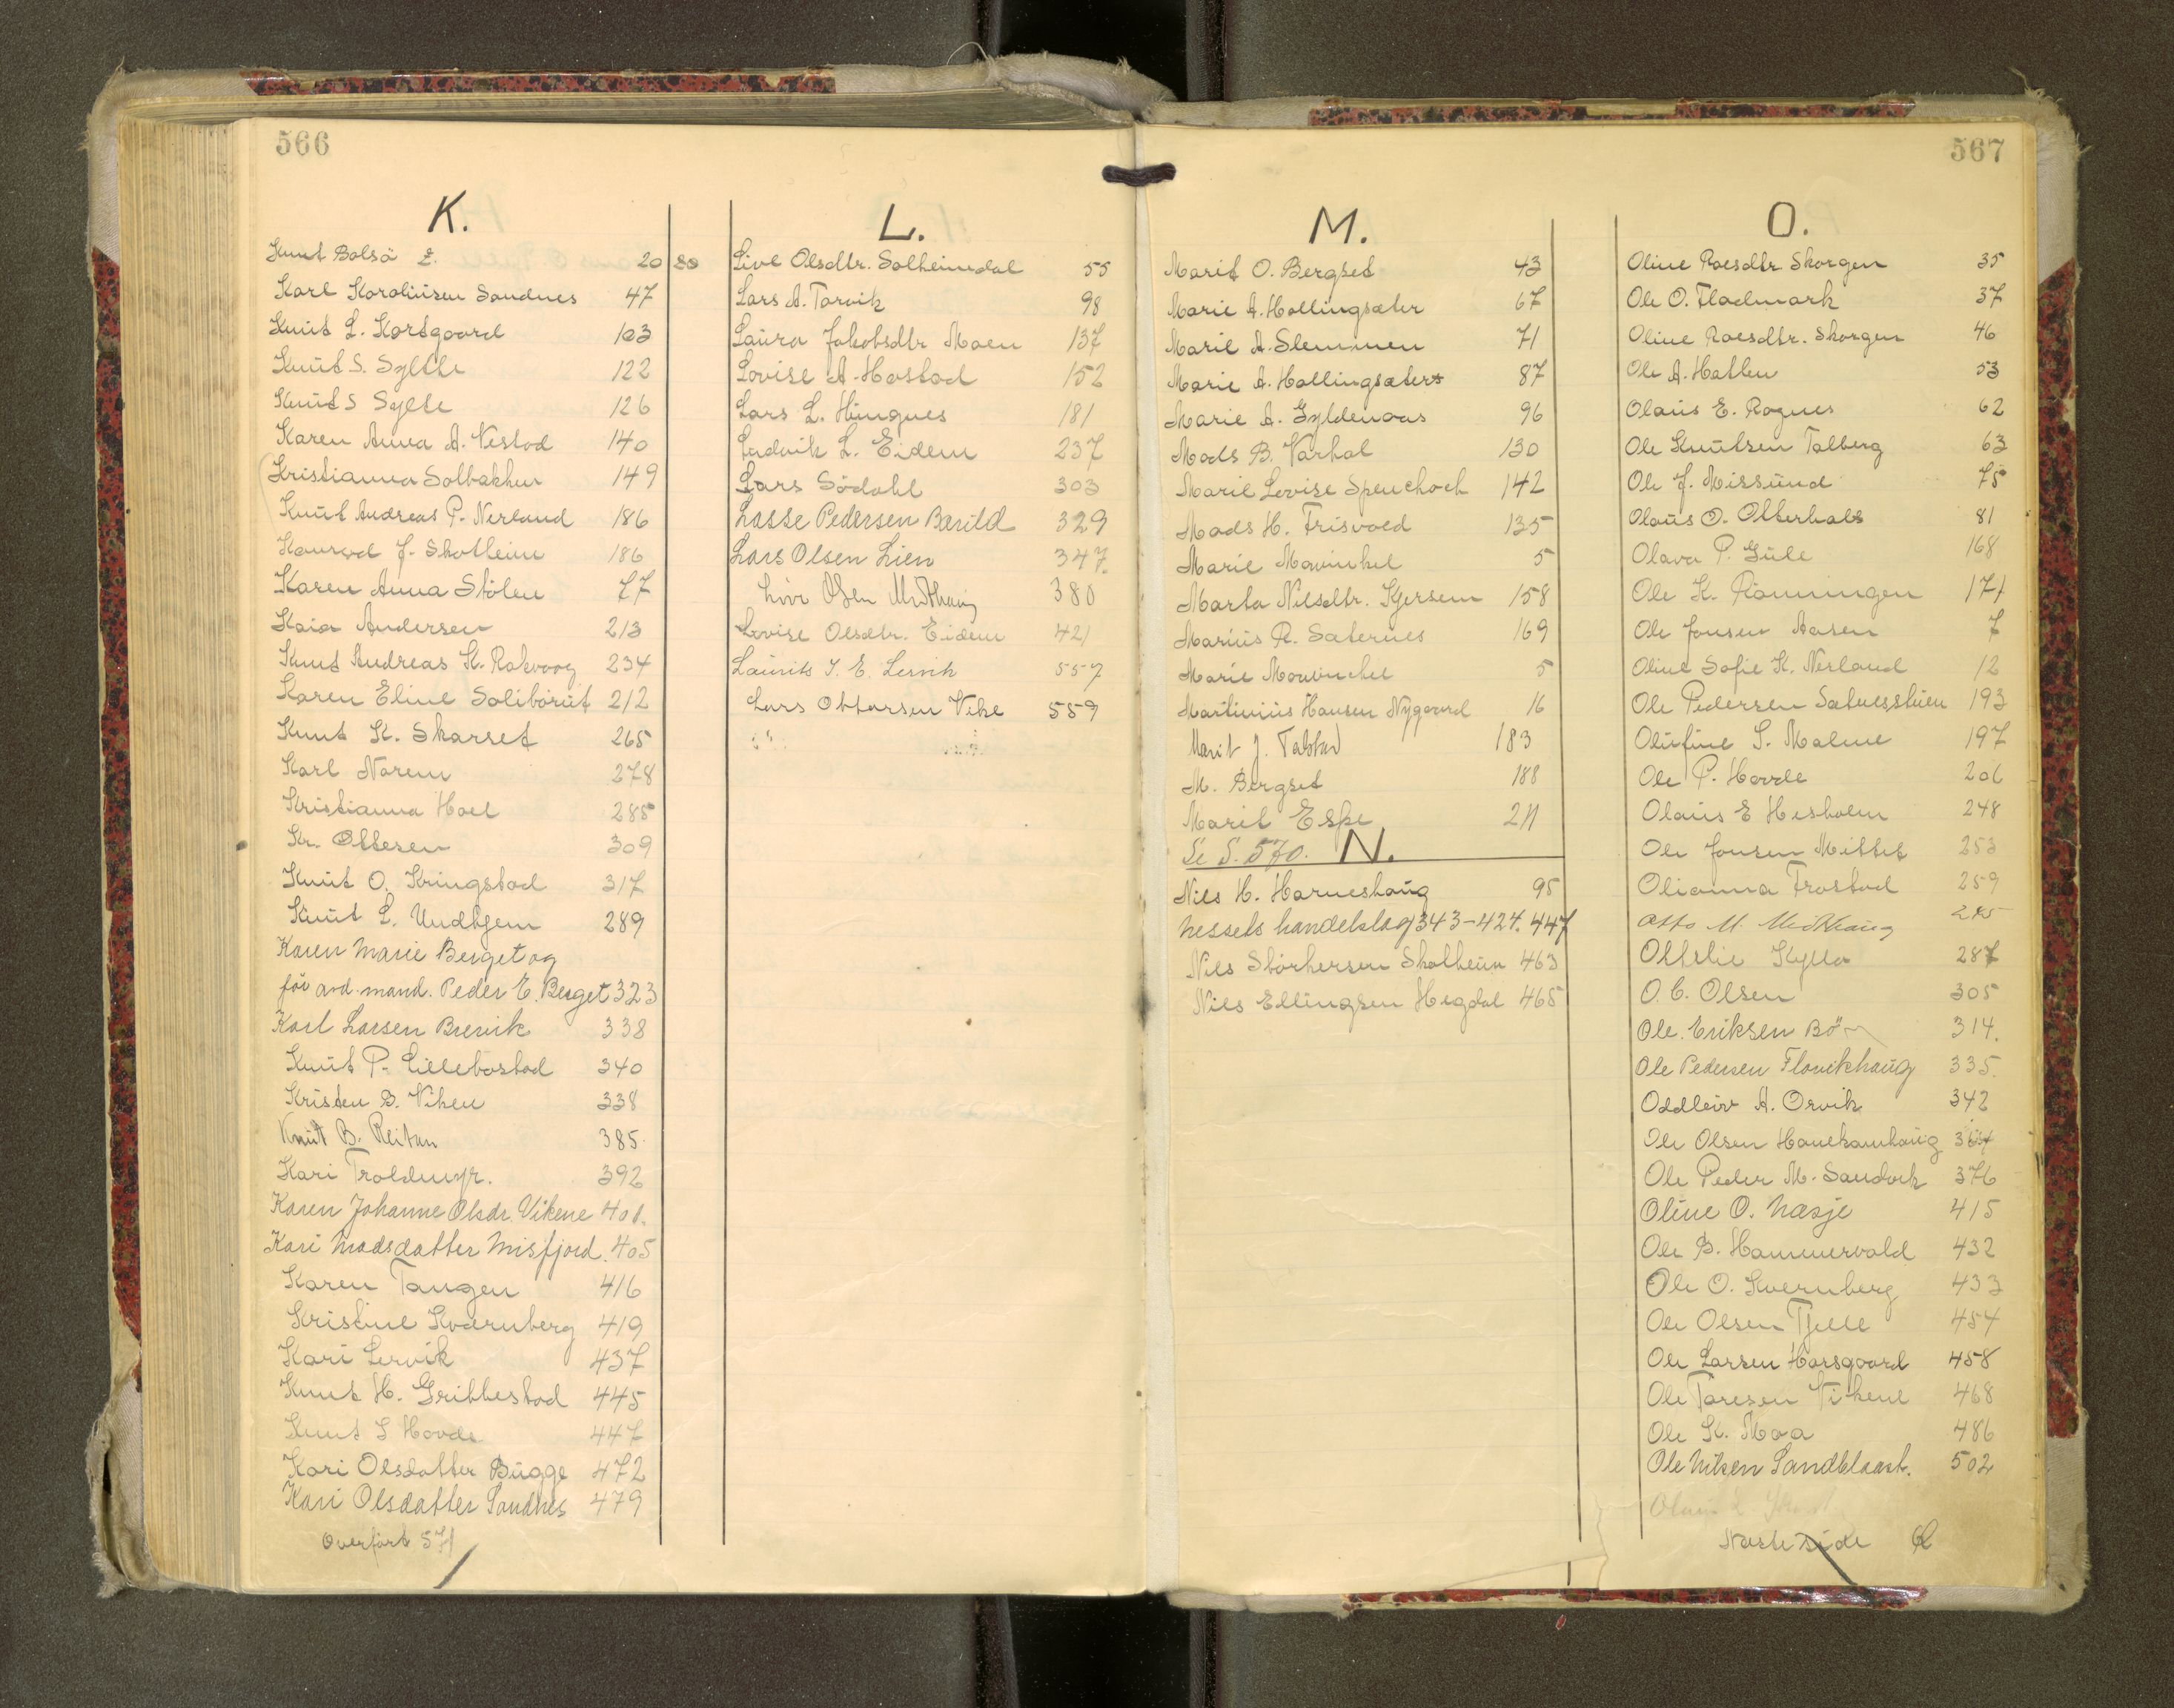 566
K.
Knut Bolsø E. 20 80
Karl Karolinsen Sandnes 47
Knut L. Kortgaard 103
Knut S. Sylthe 122
Knut S Sylte 126
Karen Anna A. Vestad 140
Kristianna Solbakken 149
Knut Andreas P. Nerland 186
Konrad J. Skotheim 186
Karen Anna Stölen 77
Kaia Andersen 213
Knut Andreas K. Rakvaag 234
Karen Eline Solibörut 212
Knut K. Skarset 265
Karl Narem 278
Kristianna Hoel 285
Kr. Ottesen 309
Knut O. Kringstad 317
Knut L. Undhjem 289
Karen Marie Berget og
for avd. mand. Peder E. Berget 323
Karl Larsen Brevik 338
Knut P. Lillebostad 340
Kristen B. Viken 338
Knut B. Reitan 385
Kari Troldmyr. 392
Karen Johanne Olsdr. Vikene 401.
Kari Madsdatter Misfjord. 405
Karen Tangen 416
Kristine Kvarnberg 419
Kari Lervik 437
Knut H. Gribbestad 445
Knut S Hovde 447
Kari Olsdatter Bugge 472
Kari Olsdatter Sandnes 479
Overført 571
L.
Live Olsdtr. Solheimdal 55
Lars A. Torvik 98
Laura Jakobsdtr Moen 137
Lovise A. Hostad 152
Lars L. Hungnes 181
Ludvik L. Eidem 237
Lars Södahl 303
Lasse Pedersen Barild 329
Lars Olsen Lien 347.
Livor Olsen Midthaug 380
Lovise Olsdtr. Eidem 421
Laurits I. E. Lervik 557
Lars Ottarsen Vike 559
M.
Marit O. Bergset 43
Marie A. Hollingsæter 67
Marie A. Slemmen 71
Marie A. Hollingsæter 87
Marie A. Gyldenaas 96
Mads B. Varhol 130
Marie Lovise Spenchoch 142
Mads H. Frisvold 135
Marie Mowinkel 5
Marta Nilsdtr. Kjersem 158
Marius R. Saternes 169
Marie Mowinckel 5
Martinius Hansen Nygaard 16
Marit J. Talstad 183
M. Bergset 188
Marit Espe 211
Se S. 570. N.
Nils H. Harneshaug 95
Nessets handelslag 343-424. 447
Nils Storkersen Skalheim 463
Nils Ellingsen Hegdal 465
567
O.
Oline Roesdtr Skorgen 35
Ole O. Fladmark 37
Oline Roesdtr. Skorgen 46
Ole A. Hatlen 53
Olaus E. Rognes 62
Ole Knutsen Talberg 63
Ole J. Missund 75
Olaus O. Otterhals 81
Olava P. Gule 168
Ole K. Rönningen 171
Ole Jonsen Aasen 7
Oline Sofie K. Nerland 12
Ole Pedersen Satnesstuen 193
Olufine S. Malme 197
Ole P. Hovde 206
Olaus E Hesholm 248
Ole Jonsen Mittet 253
Olianna Frostad 259
Otto M. Midthaug 285
Ottelie Kylla 287
O. C. Olsen 305
Ole Eriksen Bö 314.
Ole Pedersen Flovikhaug 335.
Oddleiv A. Orvik 342
Ole Olsen Hanekamhaug 364
Ole Peder M. Sandvik 376
Oline O. Næsje 415
Ole B. Hammervold 432
Ole O. Kvernberg 433
Ole Olsen Tjelle 454
Ole Larsen Horsgaard 458
Ole Toresen Vikene 468
Ole K. Moa 486
Ole Nilsen Sandblaast. 502
Næste side